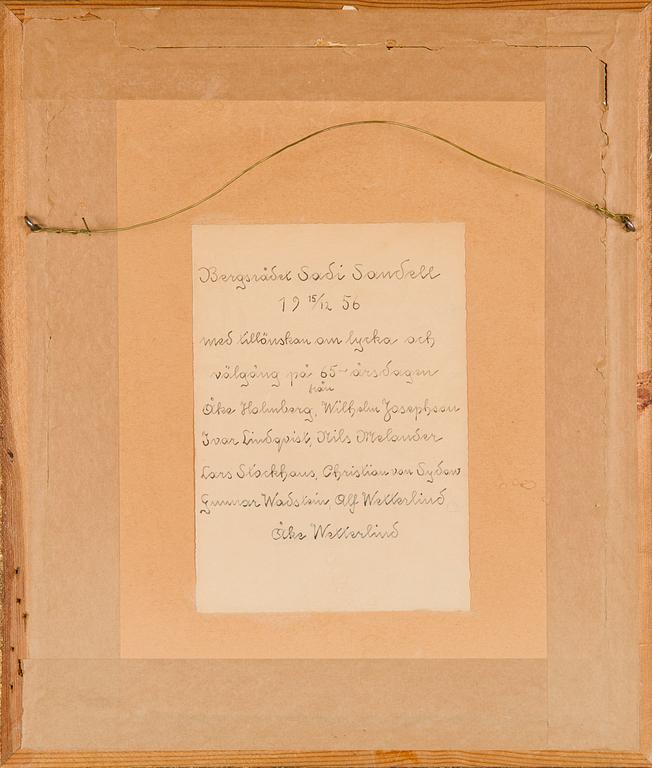 Bergsrådet Sadi Sandell
19 15/12 56
med tillönskan om lycka och
välgång på 65-årsdagen
från
Åke Holmberg, Wilhelm Josephson
Ivar Lindqvist, Nils Melander
Lars Stockhaus, Christian von Sydow
Gunnar Wadstein, Alf Wetterlind
Åke Wetterlind